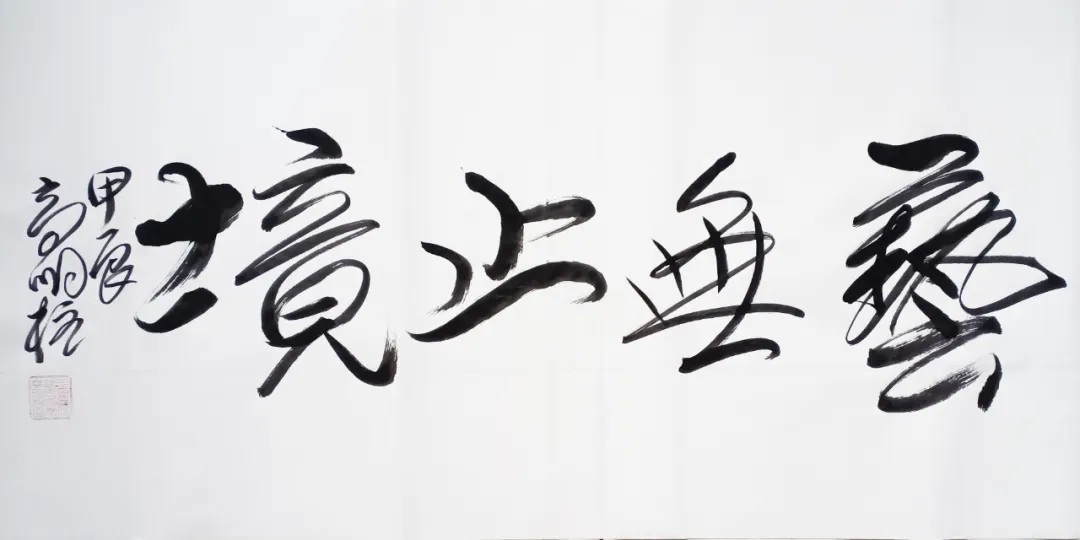 藝無止境
甲辰
高明柱